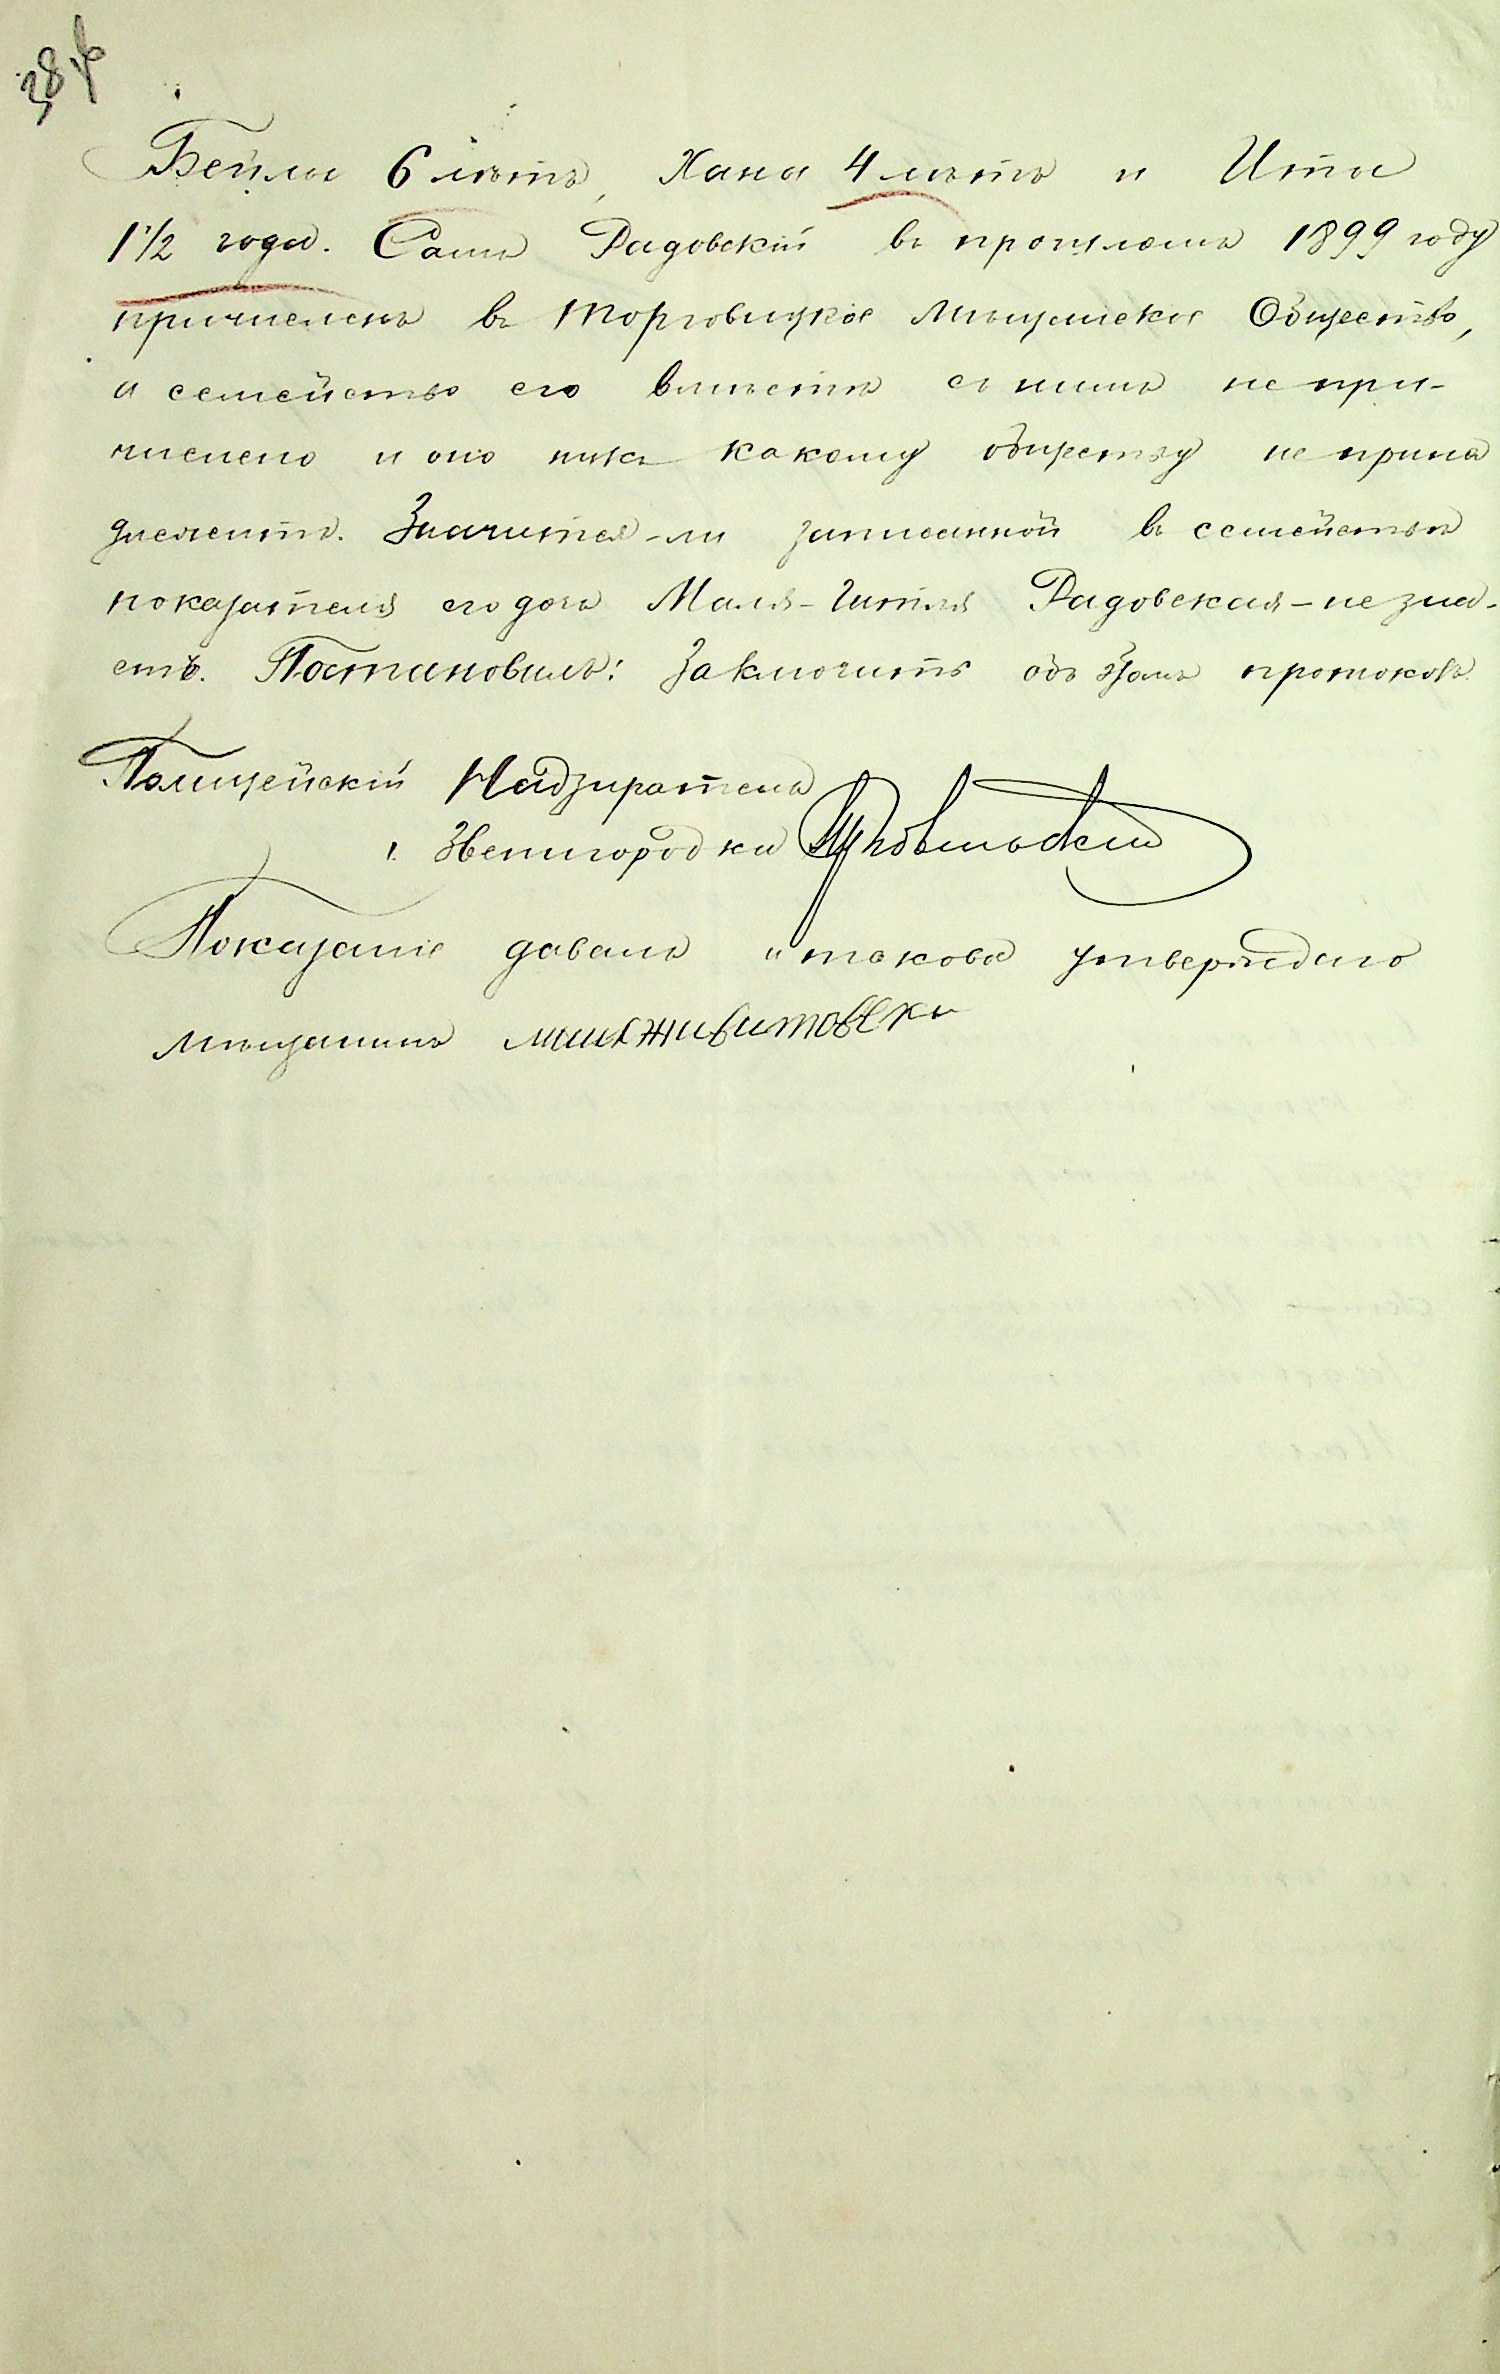 Бейла 6 лѣтъ, Хана 4 лѣтъ и Ита
1 1/2 года. Самъ Радовскій въ прошломъ 1899 году
причисленъ въ Торговицкое Мѣщанское Общество,
а семейство его вмѣстѣ съ нимъ не при-
числено и оно никъ какому обществу не прина
длежитъ. Значится-ли записанной въ семействѣ
показателя его дочь Маля-Гитля Радовская – не зна-
етъ. Постановилъ: Заключить объ этомъ протоколъ.
Полицейскій Надзиратель
г. Звенигородки
Показаніе давалъ и таково утверждаю
мѣщанинъ Животовски